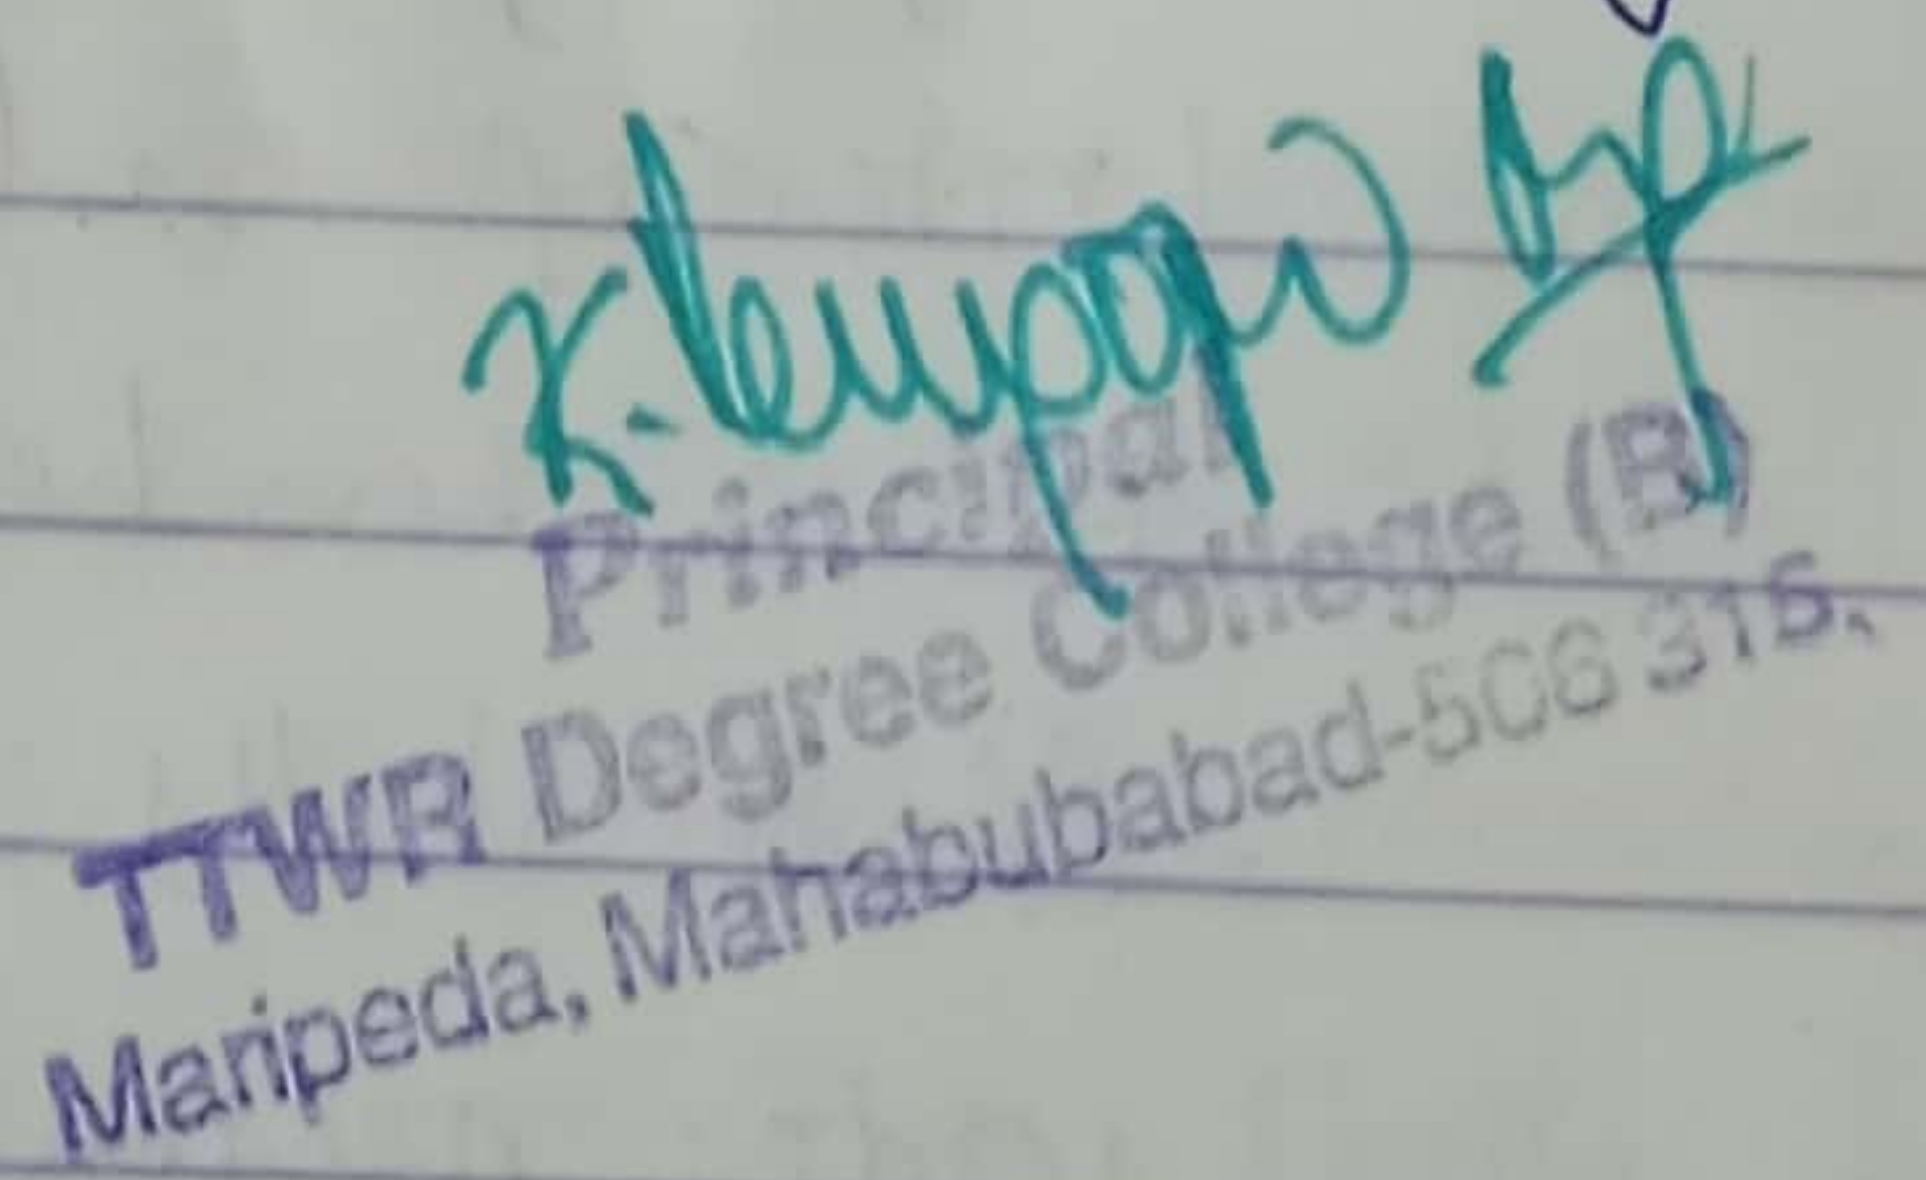 Principal
TTWR Degree College (B)
Maripeda, Mahabubabad-506 315.